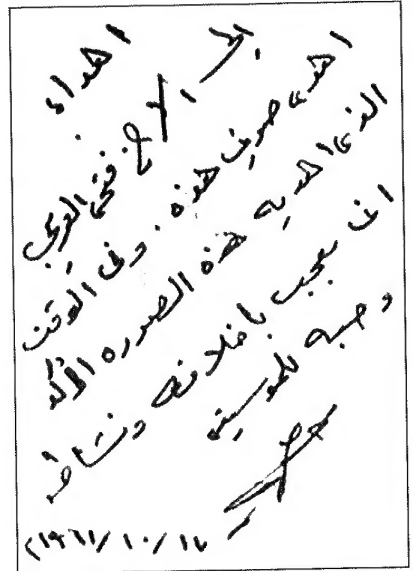 اهداء
إلى الأخ فتحي العريبي
اهدي صورتي هذه. وفي الوقت
الذي اهديه هذه الصوره اؤكد
اني معجب بأخلاقه ونشاطه
وحبه للموسيقى
١٩٦١/١٠/١٧م